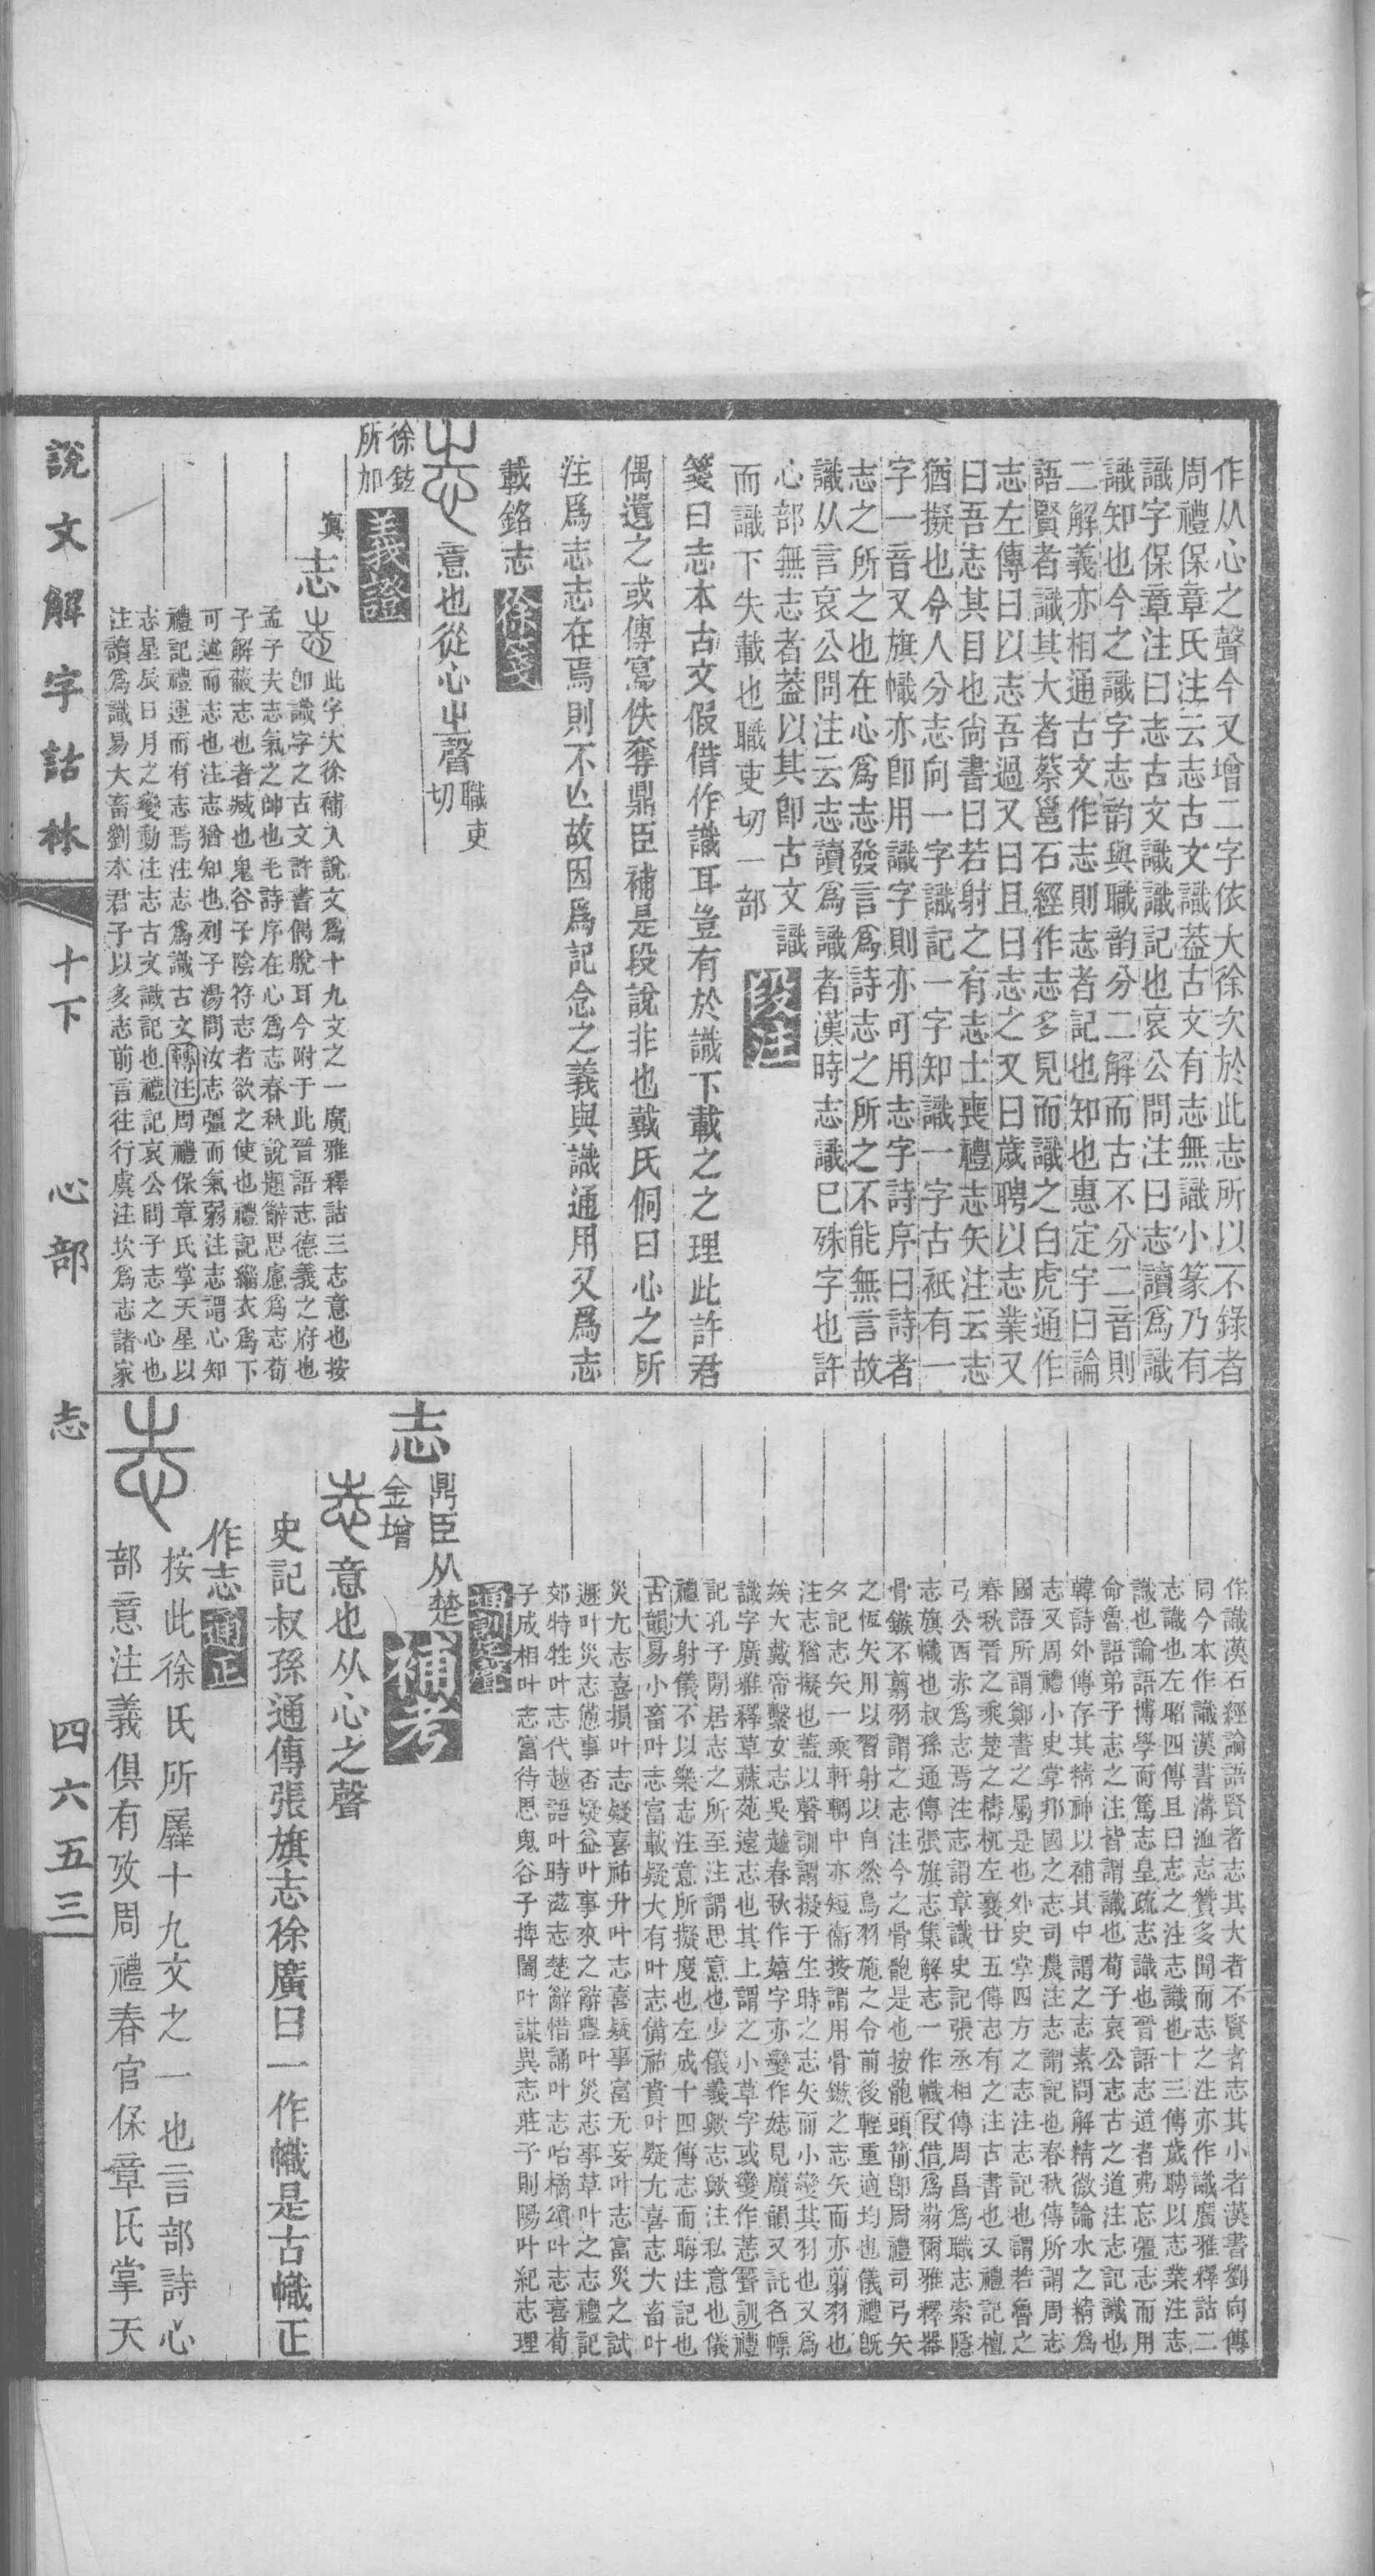 作从心之聲今又增二字依大徐次於此志所以不錄者
周禮保章氏注云志古文識葢古文有志無識小篆乃有
識字保章注曰志古文識識記也哀公問注曰志讀爲識
識知也今之識字志韵與職韵分二解而古不分二音則
二解義亦相通古文作志則志者記也知也惠定宇曰論
語賢者識其大者蔡邕石經作志多見而識之白虎通作
志左傳曰以志吾過又曰且曰志之又曰歲聘以志業又
曰吾志其目也尙書曰若射之有志士喪禮志矢注云志
猶擬也今人分志向一字識記一字知識一字古祇有一
字一音又旗幟亦卽用識字則亦可用志字詩序曰詩者
志之所之也在心爲志發言爲詩志之所之不能無言故
識从言哀公問注云志讀爲識者漢時志識已殊字也許
心部無志者葢以其卽古文識
而識下失載也職吏切一部
段注
箋曰志本古文假借作識耳豈有於識下載之之理此許君
偶遺之或傳寫佚奪鼎臣補是段說非也戴氏侗曰心之所
注爲志志在焉則不亾故因爲記念之義與識通用又爲志
載銘志
徐箋
意也從心㞢聲
職吏
切
徐鉉
所加
義證
寘 志
此字大徐補入說文爲十九文之一廣雅釋詁三志意也按
卽識字之古文許書偶脫耳今附于此晉語志德義之府也
孟子夫志氣之帥也毛詩序在心爲志春秋說題辭思慮爲志荀
子解蔽志也者臧也鬼谷子陰符志者欲之使也禮記緇衣爲下
可述而志也注志猶知也列子湯問汝志彊而氣弱注志謂心知
禮記禮運而有志焉注志爲識古文轉注周禮保章氏掌天星以
志星辰日月之變動注志古文識記也禮記哀公問子志之心也
注讀爲識易大畜劉本君子以多志前言往行虞注坎爲志諸家
作識漢石經論語賢者志其大者不賢者志其小者漢書劉向傳
同今本作識漢書溝洫志贊多聞而志之注亦作識廣雅釋詁二
志識也左昭四傳且曰志之注志識也十三傳歲聘以志業注志
識也論語博學而篤志皇疏志識也晉語志道者弗忘彊志而用
命魯語弟子志之注皆謂識也荀子哀公志古之道注志記識也
韓詩外傳存其精神以補其中謂之志素問解精微論水之精爲
志又周禮小史掌邦國之志司農注志謂記也春秋傳所謂周志
國語所謂鄭書之屬是也外史掌四方之志注志記也謂若魯之
春秋晉之乘楚之檮杌左襄廿五傳志有之注古書也又禮記檀
弓公西赤爲志焉注志謂章識史記張丞相傳周昌爲職志索隱
志旗幟也叔孫通傳張旗志集解志一作幟假借爲翦爾雅釋器
骨鏃不翦羽謂之志注今之骨骲是也按骲頭箭卽周禮司弓矢
之恆矢用以習射以自然鳥羽施之令前後輕重適均也儀禮旣
夕記志矢一乘軒輖中亦短衞按謂用骨鏃之志矢而亦翦羽也
注志猶擬也蓋以聲訓謂擬于生時之志矢而小變其羽也又爲
娭大戴帝繫女志吳越春秋作嬉字亦變作娡見廣韻又託名幖
識字廣雅釋草蕀蒬遠志也其上謂之小草字或變作莣聲訓禮
記孔子閒居志之所至注謂思意也少儀義歟志歟注私意也儀
禮大射儀不以樂志注意所擬度也左成十四傳志而晦注記也
古韻易小畜叶志富載疑大有叶志備祐賁叶疑尤喜志大畜叶
災尤志喜損叶志疑喜祐升叶志喜疑事富无妄叶志富災之試
遯叶災志憊事否疑益叶事來之辭豐叶災志事草叶之志禮記
郊特牲叶志代越語叶時滋志楚辭惜誦叶志咍橘頌叶志喜荀
子成相叶志富待思鬼谷子捭闔叶謀異志莊子則陽叶紀志理
通訓定聲
志
鼎臣从楚
金增
補考
意也从心之聲
史記叔孫通傳張旗志徐廣曰一作幟是古幟正
作志
通正
按此徐氏所羼十九文之一也言部詩心
部意注義俱有攷周禮春官保章氏掌天
說文解字詁林 十下 心部 志 四六五三